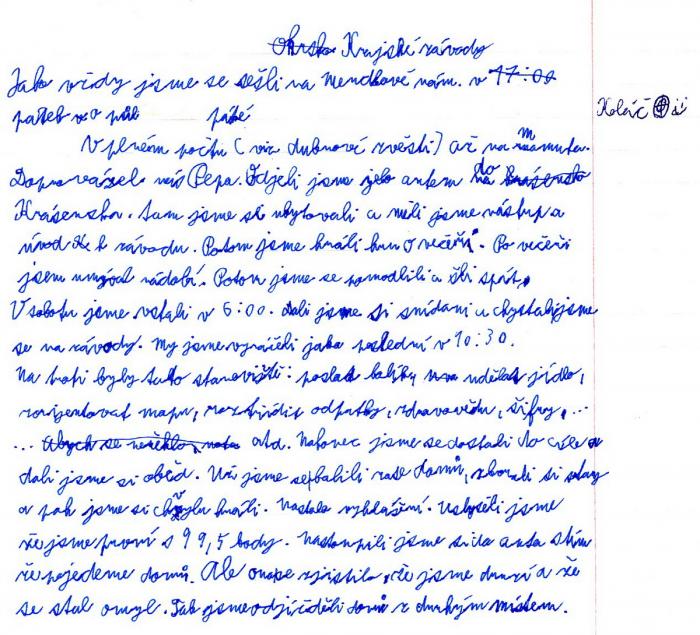 Krajské závody
Jako vždy jsme se sešli na Mendlově nám. v 17:00
půl páté
Koláč
V plném počtu (viz dubnové zvěsti) až na mamuta.
Doprovázel nás Pepa. Odjeli jsme jeho autem do
Krásenska. tam jsme se ubytovali a měli jsme nástup a
úvod k závodu. Potom jsme hráli hru o večeři. Po večeři
jsem umýval nádobí. Potom jsme se pomodlili a šli spát.
V sobotu jsme vstali v 6:00. dali jsme si snídani a chystali jsme
se na závody. My jsme vyráželi jako poslední v 10:30.
Na trati byly tato stanoviště: poslat balíky udělat jídlo,
zorientovat mapu, roztřídit odpadky, zdravovědu, šifry, ...
... Abych se neřeklo, atd. Nakonec jsme se dostali do cíle a
dali jsme si oběd. Už jsme sebalili naše domů, si
a pak jsme si chvylu hráli. Nastalo vyhlášení. Uslyšeli jsme
že jsme první s 99,5 body. Nastoupili jsme si do auta s tím
že pojedeme domů. Ale zjistilo, že jsme druzí a že
se stal omyl. Tak jsme odjížděli domů z druhým místem.